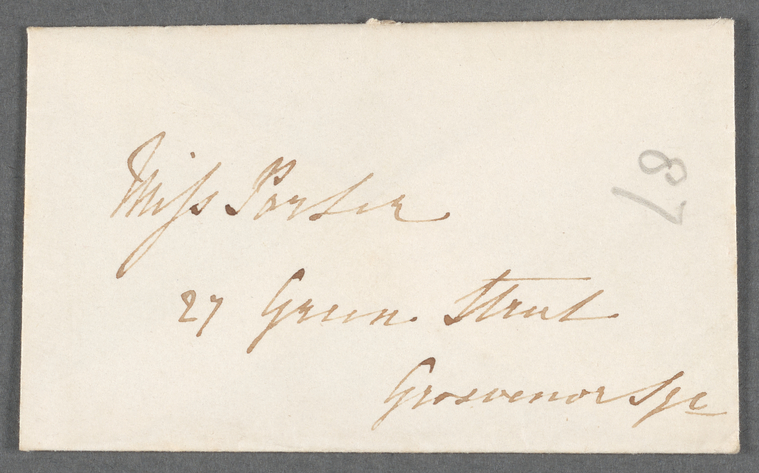 Miss Porter
27 Green Street
Grosvenor Sqe
87